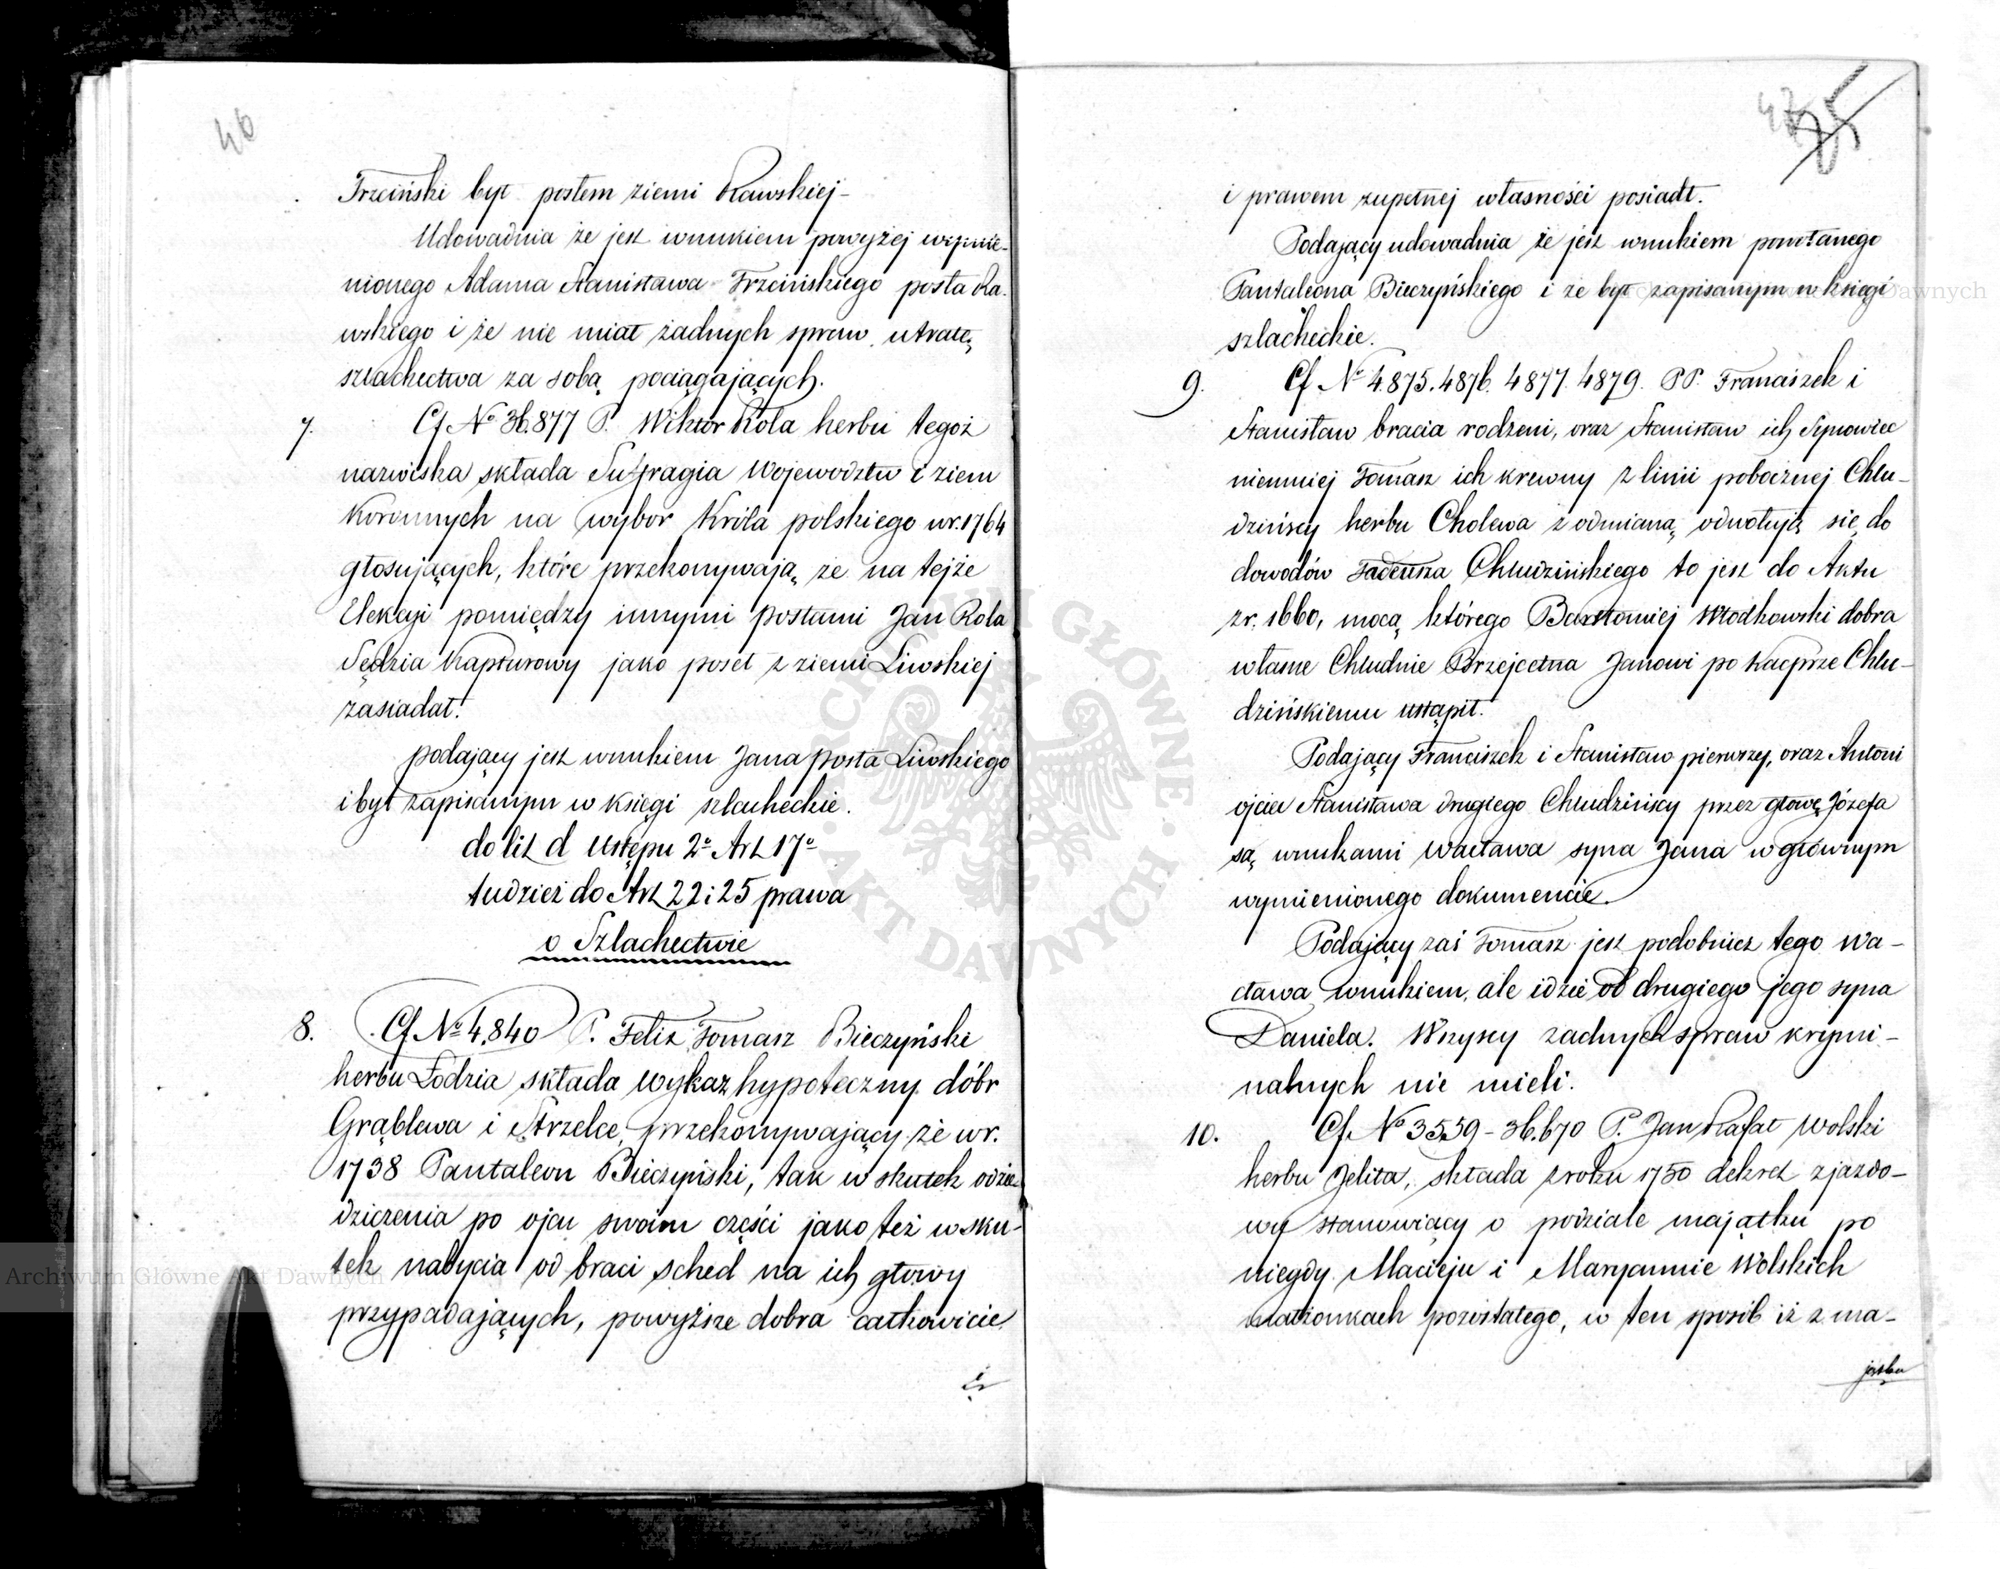 46
Trzciński był posłem ziemi Rawskiej-
Udowadnia że jest wnukiem powyżej wymie-
nionego Adama Stanisława Trzcińskiego posła Ra-
wskiego i że nie miał żadnych spraw utratę
szlachectwa za sobą pociągających.
7. Cf № 36.877 P. Wiktor Rola herbu tegoż
nazwiska składa Suffragia Wojewodztw i ziem
Koronnych na wybor Króla polskiego w r. 1764
głosujących, które przekonywają, że na tejże
Elekcyi pomiędzy innymi posłami Jan Rola
Sędzia Kapturowy jako poseł z ziemi Liwskiej
zasiadał.
podający jest wnukiem Jana posła Liwskiego
i był zapisanym w księgi szlacheckie.
do lit d ustępu 2º Art 17º
tudzież do Art 22 i 25 prawa
o Szlachectwie
8. Cf № 4.840 P. Felix Tomasz Bieczyński
herbu Łodzia składa wykaz hypoteczny dóbr
Grąblewa i Strzelce, przekonywający że w r.
1738 Pantaleon Bieczyński, tak w skutek odzie-
dziczenia po ojcu swoim części jako też w sku-
tek nabycia od braci sched na ich głowy
przypadających, powyższe dobra całkowicie
i
47 25
i prawem zupełnej własności posiadł.
Podający udowadnia że jest wnukiem pomienianego
Pantaleona Bieczyńskiego i że był zapisanym w księgi
szlacheckie.
9. Cf № 4.875. 4876. 4877. 4879. PP. Franciszek i
Stanisław bracia rodzeni, oraz Stanisław ich Synowiec
niemniej Tomasz ich krewny z linii pobocznej Chlu-
dzińscy herbu Cholewa z odmianą, odwołują się do
dowodów Tadeusza Chludzińskiego to jest do Aktu
z r. 1660, mocą którego Bartłomiej Młodkowski dobra
własne Chludnie Janowi po Kacprze Chlu-
dzińskiemu ustąpił.
Podający Franciszek i Stanisław pierwszy, oraz Antoni
ojciec Stanisława drugiego Chludzińscy przez głowę Józefa
są wnukami Wacława syna Jana w głównym
wymienionego dokumencie.
Podający zaś Tomasz jest podobnież tego Wa-
cława wnukiem, ale idzie od drugiego jego syna
Daniela. Wszyscy żadnych spraw krymi-
nalnych nie mieli.
10. Cf. № 3559 - 36.670 P. Jan Rafał Wolski
herbu Jelita, składa z roku 1750 dekret zjazdo-
wy stanowiący o podziale majątku po
niegdy Macieju i Maryannie Wolskich
małżonkach pozostałego, w ten sposób iż z ma-
jątku
ARCHIWUM GŁÓWNE AKT DAWNYCH
Archiwum Główne Akt Dawnych